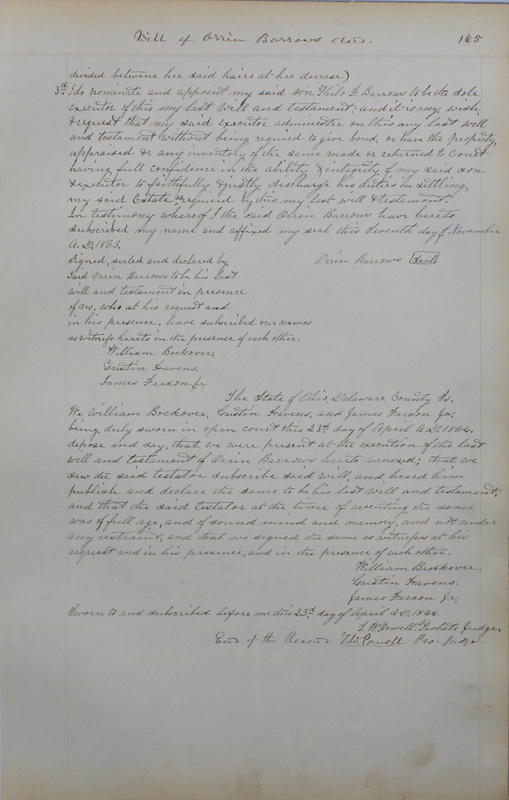 Will of Orrin Barrows dcd. 165
divided between her said hairs at her decease)
3rd I do nominate and appoint my said son Philo F. Barrows to be the sole
executor of this my last will and testament; and it is my wish
& request that my said executor administer on this my last will
and testament without being required to give bond, or have the property
appraised or any inventory of the same made or returned to Court
having full confidence in the ability & integrity of my said son
& executor to faithfully & justly discharge his duties in settling
my said Estate as required by this my last will & testament.
In testimony whereof I the said Orrin Barrows have hereto
subscribed my name and affixed my seal this Seventh day of November
A.D. 1863.
Signed, sealed and declared by Orrin Barrows (Seal)
said Orrin Barrows to be his last
will and testament in presence
of us, who at his request and
in his presence, have subscribed our names
as witness hereto in the presence of each other.
William Bockover,
Gustin Havens,
James Ferson Jr,
The State of Ohio, Delaware County Ss.
We William Bockover, Gustin Havens, and James Ferson Jr;
being duly sworn in open court this 23rd day of April A.D. 1864.
depose and say, that we were present at the execution of this last
will and testament of Orrin Barrows hereto annexed; that we
saw the said testator subscribe said will, and heard him
publish and declare the same to be his last will and testament;
and that the said testator at the time of executing the same
was of full age, and of sound mind and memory, and not under
any restraint, and that we signed the same as witness at his
request and in his presence, and in the presence of each other.
William Bockover.
Gustin Havens.
James Ferson Jr;
Sworn to and subscribed before me this 23rd day of April A.D. 1864.
T. W. Powell Probate Judge
End of the Record. T.W. Powell Pro. Judge.